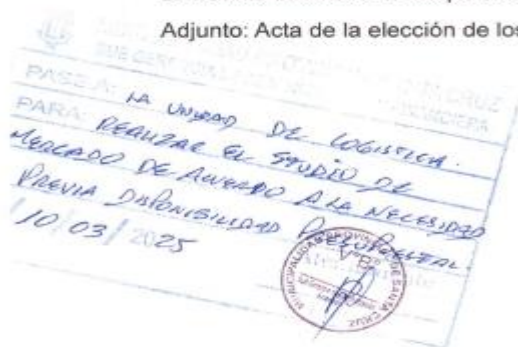 Adjunto: Acta de la elección de los
PASE A: LA UNIDAD DE LOGISTICA.
PARA: REALIZAR EL STUDIO DE
MERCADO DE ACUERDO A LA NECESIDAD
PREVIA DISPONIBILIDAD PRESUPUESTAL.
10/03/2025
MUNICIPALIDAD PROVINCIAL DE SANTA CRUZ
V°B°